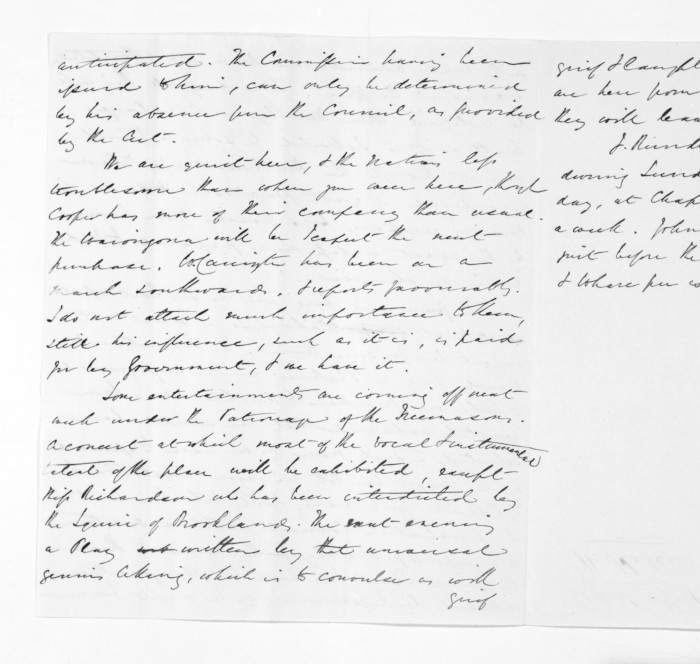 anticipated. The Commission having been
issued to him, can only be determined
by his absence from the Council, as provided
by the Act.
We are quiet here, & the Natives less
troublesome than when you were here, though
Cooper has more of their company than usual.
The Wairongona will be I expect the next
purchase. has been on a
march southwards. & reports favourably.
I do not attach much importance to them,
still his influence, such as it is, is paid
for by Government, & we have it.
Some entertainments are coming off next
week under the Patronage of the Freemasons.
A concert at which most of the vocal & instrumental
talent of the place will be exhibited, except
Miss Richardson who has been interdicted by
the Squire of Brooklands. The next evening
a Play written by that universal
genius, which is to convulse us with
grief
grief & laught
are here from
they will leav
J.
during Sund
day, at Chap
a week. John
just before the
& Whare is